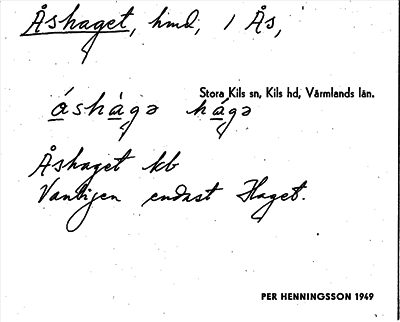 Åshaget, hmd, 1 Ås,
Stora Kils sn, Kils hd, Värmlands län.
áshàgə hágə
Åshaget kb
Vanligen endast Haget.
PER HENNINGSSON 1949